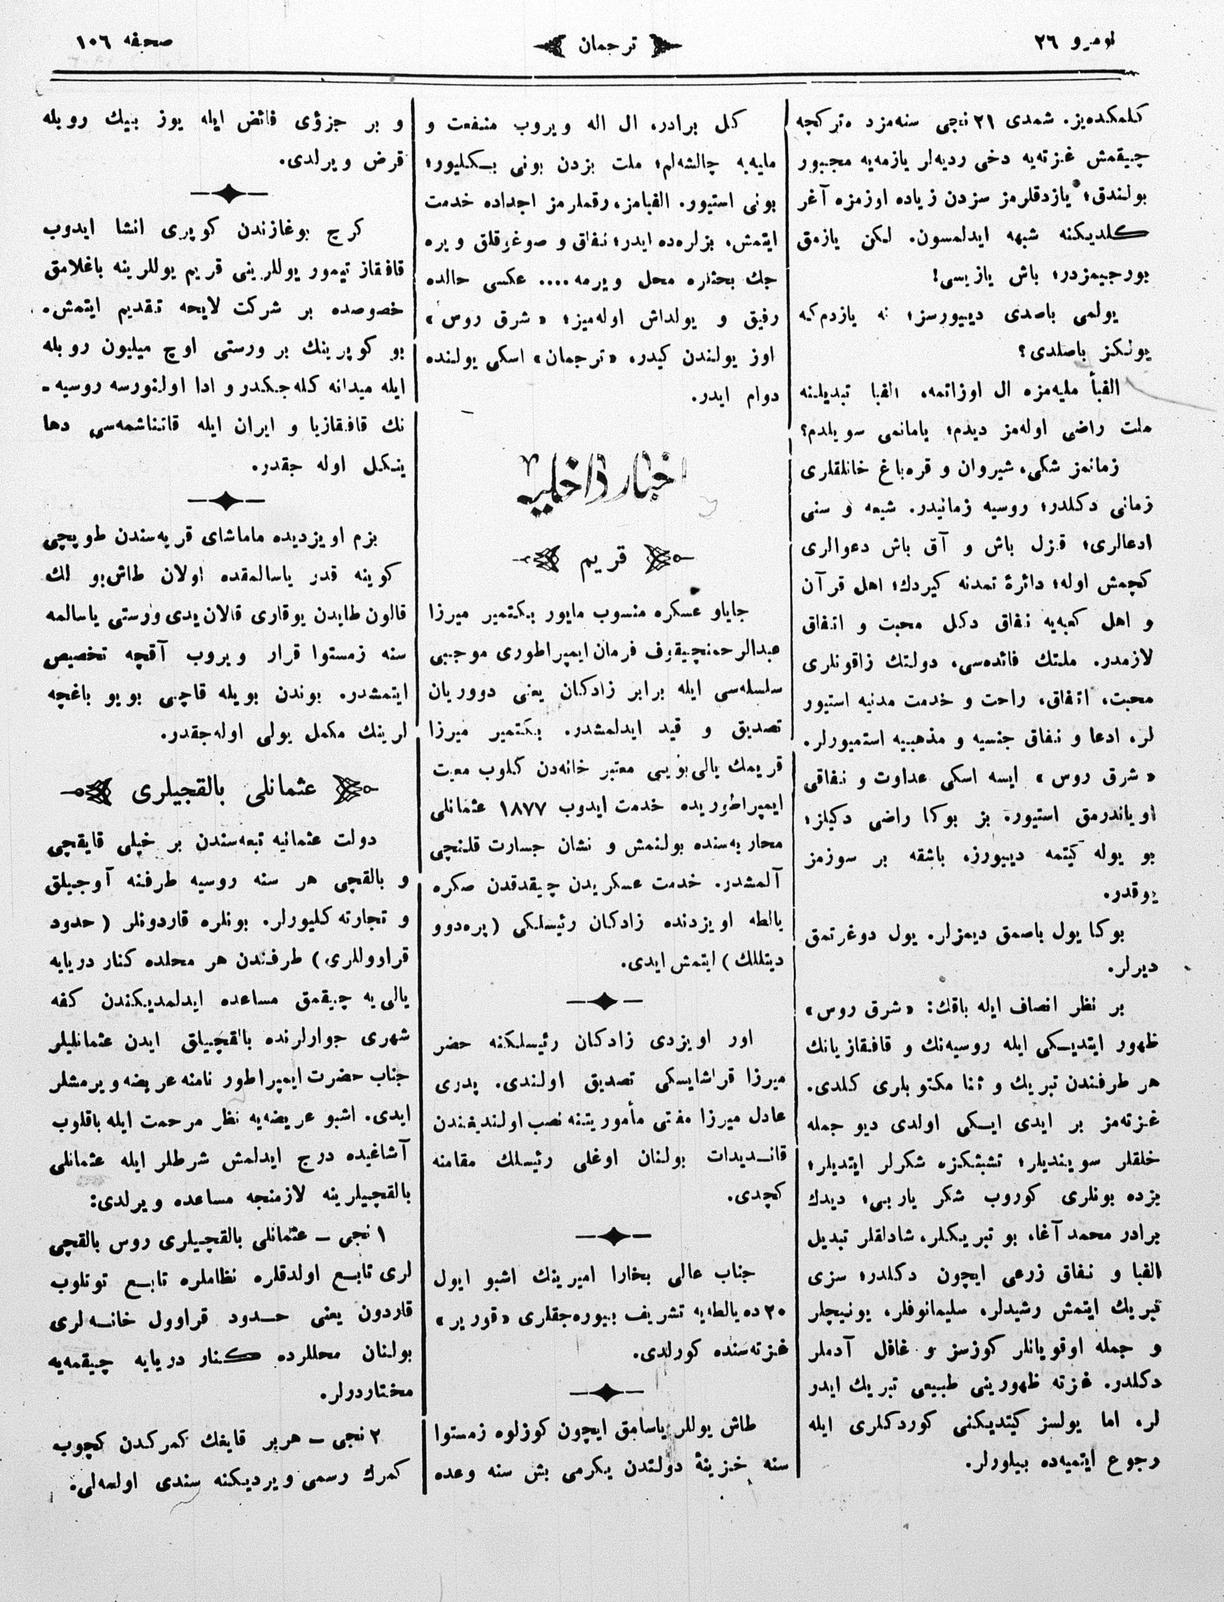 نومرو ٢٦
ترجمان
صحیفه ١٠٦
كلمكده‌یز. شمدی ٢١ نجی سنه‌مزد ه‌تركچه
چیقمش غزته‌یه دخی ردیه‌لر یازمه‌یه مجبور
بولندق؛ یازدقلرمز سزدن زیاده اوزمزه آغر
كلدیكنه شبهه ایدلمسون. لكن یازمق
بورجیمزدر؛ باش یازیسی!
یولمی باصدی دییورسز؛ نه یازدم‌كه
یولكز باصلدی؟
الفبأ ملیه‌مزه ال اوزاتمه، الفبا تبدیلنه
ملت راضی اوله‌مز دیدم؛ یامانمی سویلدم؟
زمانمز شكی، شیروان و قره‌باغ خانلقلری
زمانی دكلدر؛ روسیه زمانیدر. شیعه و سنی
ادعالری؛ قزل باش و آق باش دعوالری
كچمش اوله؛ دائرهٔ تمدنه كیردك؛ اهل قرآن
و اهل كعبه‌یه نفاق دكل محبت و اتفاق
لازمدر. ملتك فائده‌سی، دولتك زاقونلری
محبت، اتفاق، راحت و خدمت مدنیه استیور
لر، ادعا و نفاق جنسیه و مذهبیه استمیورلر.
« شرق روس » ایسه اسكی عداوت و نفاقی
اویاندرمق استیور؛ بز بوكا راضی دكلز؛
بو یوله كیتمه دییورز، باشقه بر سوزمز
یوقدر.
بوكا یول باصمق دیمزلر. یول دوغرتمق
دیرلر.
بر نظر انصاف ایله باقك: « شرق روس »
ظهور ایتدیكی ایله روسیه‌نك و قافقازیانك
هر طرفندن تبریك و ثنا مكتوبلری كلدی.
غزته‌مز بر ایدی ایكی اولدی دیو جمله
خلقلر سویندیلر؛ تشبثكزه شكرلر ایتدیلر؛
بزده بونلری كوروب شكر یاربی؛ دیدك
برادر محمد آغا، بو تبریكلر، شادلقلر تبدیل
الفبا و نفاق زرعی ایچون دكلدر؛ سزی
تبریك ایتمش رشیدلر، سلیمانوفلر، یونیچلر
و جمله اوقویانلر كوزسز و غافل آدملر
دكلدر. غزته ظهورینی طبیعی تبریك ایدر
لر، اما یولسز كیتدیكنی كوردكلری ایله
رجوع ایتمیه‌ده بیلورلر.
كل برادر، ال اله ویروب منفعت و
مایه‌یه چالشه‌لم؛ ملت بزدن بونی بكلیور؛
بونی استیور. الفبامز، رقملرمز اجداده خدمت
ایتمش، بزلره‌ده ایدر؛ نفاق و صوغرقلق ویره
جك بحثلره محل ویرمه.... عكسی حالده
رفیق و یولداش اوله‌میز؛ « شرق روس »
اوز یولندن كیدر، « ترجمان » اسكی یولنده
دوام ایدر.
اخبار داخلیه
قریم
جایاو عسكره منسوب مایور بكتمیر میرزا
عبدالرحمنچیقوف فرمان ایمپراطوری موجبی
سلسله‌سی ایله برابر زادكان یعنی دووریان
تصدیق و قید ایدلمشدر. بكتمیر میرزا
قریمك یالی‌بویی معتبر خانه‌دن كلوب معیت
ایمپراطوریده خدمت ایدوب ١٨٧٧ عثمانلی
محاربه‌سنده بولنمش و نشان جسارت قلنچی
آلمشدر. خدمت عسكریدن چیقدقدن صكره
یالطه اویزدنده زادكان رئیسلكی ( پره‌دوو
دیتللك ) ایتمش ایدی.
اور اویزدی زادكان رئیسلكنه حضر
میرزا قراشایسكی تصدیق اولندی. پدری
عادل میرزا مفتی مأموریتنه نصب اولندیغندن
قاندیدات بولنان اوغلی رئیسلك مقامنه
كچدی.
جناب عالی بخارا امیرینك اشبو ایول
٢٠ ده یالطه‌یه تشریف بیوره‌جقلری « قوریر »
غزته‌سنده كورلدی.
طاش یوللر یاسامق ایچون كوزلوه زمستوا
سنه خزینهٔ دولتدن یكرمی بش سنه وعده
و بر جزؤی فائض ایله یوز بیك روبله
قرض ویرلدی.
كرچ بوغازندن كوپری انشا ایدوب
قافقاز تیمور یوللرینی قریم یوللرینه باغلامق
خصوصده بر شركت لایحه تقدیم ایتمش.
بو كوپرینك بر ورستی اوچ میلیون روبله
ایله میدانه كله‌جكدر و ادا اولنورسه روسیه-
نك قافقازیا و ایران ایله قاتناشمه‌سی دها
ینكل اوله جقدر.
بزم اویزدیده ماماشای قریه‌سندن طوپچی
كوینه قدر یاسالمقده اولان طاش‌یولك
قالون طایدن یوقاری قالان یدی وورستی یاسالمه
سنه زمستوا قرار ویروب آقچه تخصیص
ایتمشدر. بوندن بویله قاچی بویو باغچه
لرینك مكمل یولی اوله‌جقدر.
عثمانلی بالقجیلری
دولت عثمانیه تبعه‌سندن بر خیلی قایقچی
و بالقچی هر سنه روسیه طرفنه آوجیلق
و تجارته كلیورلر. بونلره قاردونلر ( حدود
قراووللری ) طرفندن هر محلده كنار دریایه
یالی‌یه چیقمق مساعده ایدلمدیكندن كفه
شهری جوارلرنده بالقچیلق ایدن عثمانلیلر
جناب حضرت ایمپراطور نامنه عریضه ویرمشلر
ایدی. اشبو عریضه‌یه نظر مرحمت ایله باقلوب
آشاغیده درج ایدلمش شرطلر ایله عثمانلی
بالقچیلرینه لازمنجه مساعده ویرلدی:
١ نجی — عثمانلی بالقچیلری روس بالقچی
لری تابع اولدقلره نظاملره تابع توتلوب
قاردون یعنی حدود قراوول خانه‌لری
بولنان محللرده كنار دریایه چیقمه‌یه
مختاردولر.
٢ نجی — هربر قایقك كمركدن كچوب
كمرك رسمی ویردیكنه سندی اولمه‌لی.